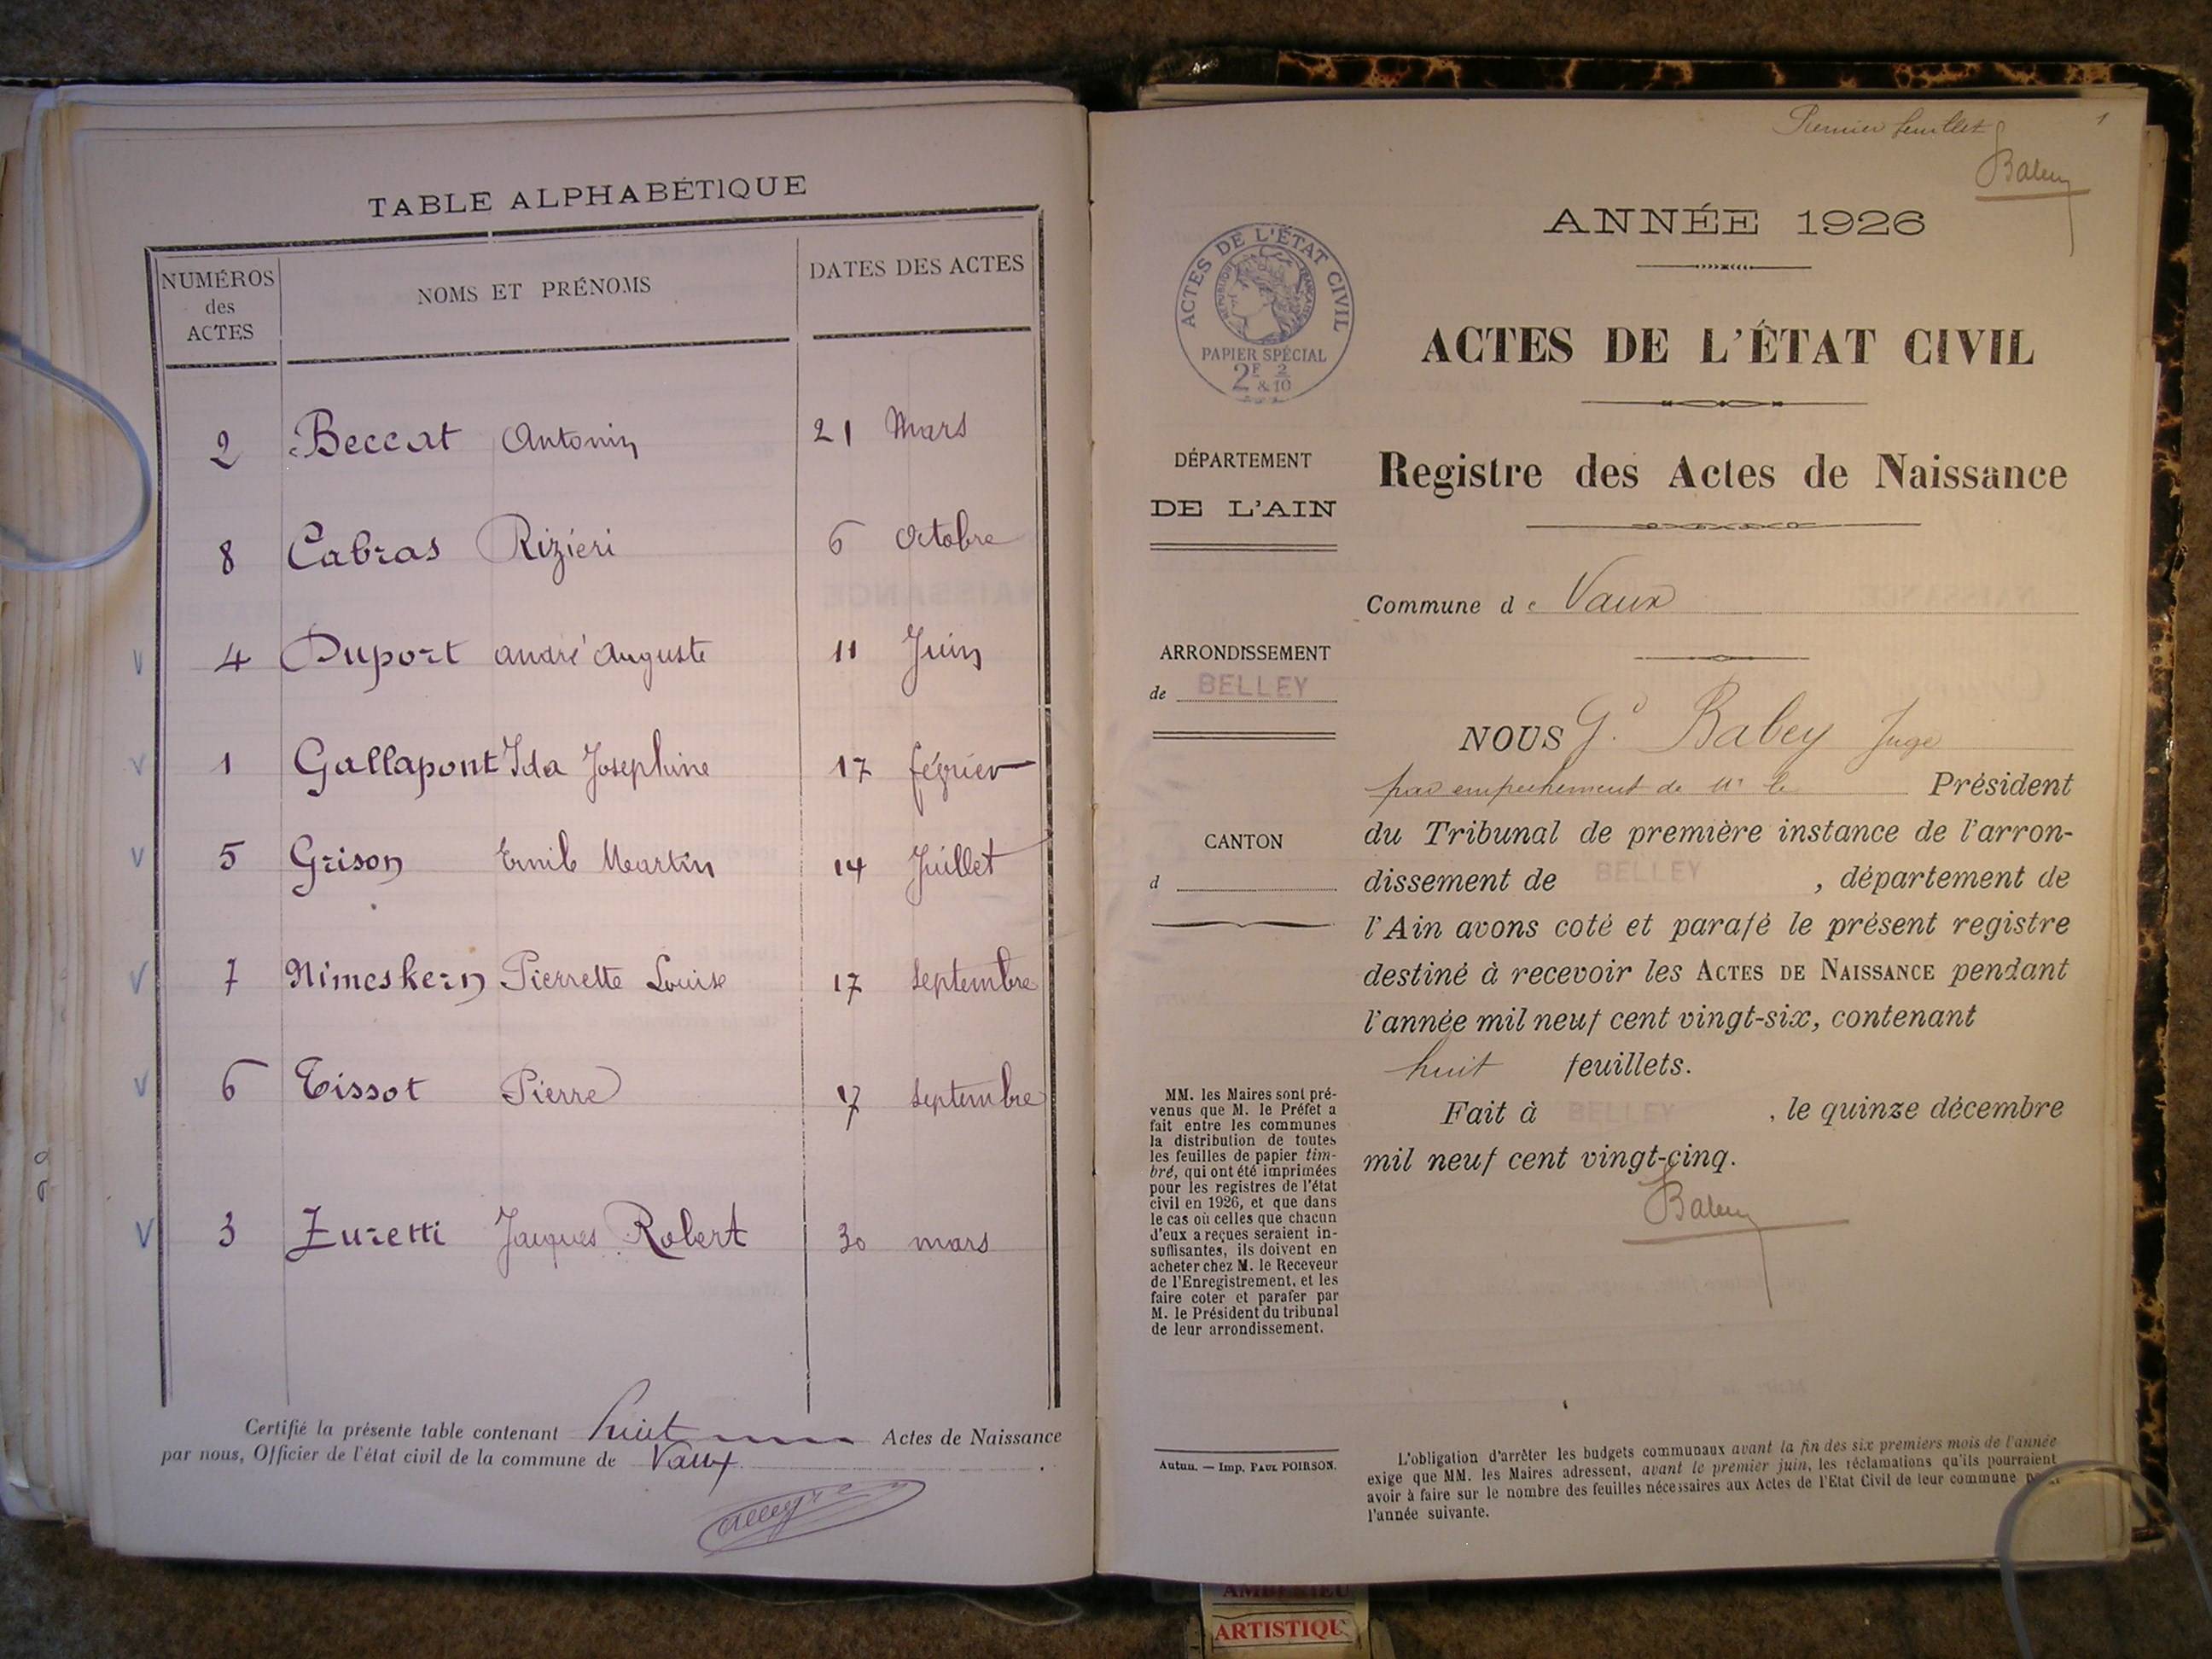 TABLE ALPHABÉTIQUE
NUMÉROS
des
ACTES
NOMS ET PRÉNOMS
DATES DES ACTES
2 Beccat Antonin 21 Mars
8 Cabras Rizieri 6 Octobre
4 Duport andré Auguste 11 Juin
1 Gallapont Ida Josephine 17 février
5 Grison Emile Martin 14 Juillet
7 Nimeskern Pierrette Louise 17 septembre
6 Tissot Pierre 17 septembre
3 Zuretti Jacques Robert 30 mars
Certifié la présente table contenant huit Actes de Naissance
par nous, Officier de l'état civil de la commune de Vaux
Premier feuillet
1
Babey
ANNÉE 1926
ACTES DE L'ÉTAT CIVIL
RÉPUBLIQUE FRANÇAISE
PAPIER SPÉCIAL
2F 2
& 10
ACTES DE L'ÉTAT CIVIL
Registre des Actes de Naissance
DÉPARTEMENT
DE L'AIN
ARRONDISSEMENT
de BELLEY
CANTON
d
MM. les Maires sont pré-
venus que M. le Préfet a
fait entre les communes
la distribution de toutes
les feuilles de papier tim-
bré, qui ont été imprimées
pour les registres de l'état
civil en 1926, et que dans
le cas où celles que chacun
d'eux a reçues seraient in-
suffisantes, ils doivent en
acheter chez M. le Receveur
de l'Enregistrement, et les
faire coter et parafer par
M. le Président du tribunal
de leur arrondissement.
Autun. — Imp. PAUL POIRSON.
Commune de Vaux
NOUS G. Babey Juge
par empechement de Mr le Président
du Tribunal de première instance de l'arron-
dissement de BELLEY, département de
l'Ain avons coté et parafé le présent registre
destiné à recevoir les ACTES DE NAISSANCE pendant
l'année mil neuf cent vingt-six, contenant
huit feuillets.
Fait à BELLEY, le quinze décembre
mil neuf cent vingt-cinq.
Babey
L'obligation d'arrêter les budgets communaux avant la fin des six premiers mois de l'année
exige que MM. les Maires adressent, avant le premier juin, les réclamations qu'ils pourraient
avoir à faire sur le nombre des feuilles nécessaires aux Actes de l'Etat Civil de leur commune pour
l'année suivante.
AMBERIEU
ARTISTIQU